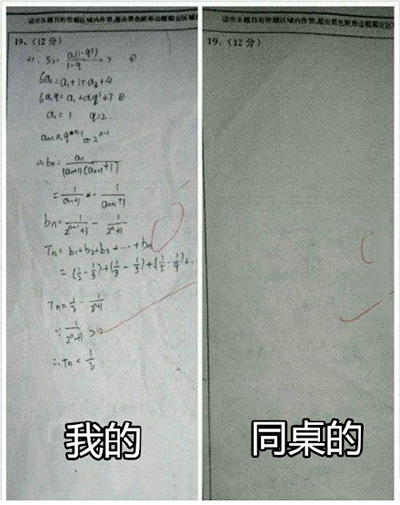 请在各题目的答题区域内作答,超出黑色矩形边框限定区域
19、(12分)
(1). S₃ = a₁(1-q³)/(1-q) = 7 ①
6a₂ = a₁+1+a₃+4
a₁ = 1 q = 2
aₙ = a₁qⁿ⁻¹ = 2ⁿ⁻¹
bₙ = aₙ/((aₙ+1)(aₙ₊₁+1))
bₙ = 1/(2ⁿ⁻¹+1) - 1/(2ⁿ+1)
Tₙ = b₁+b₂+b₃+…+bₙ
= (1/2 - 1/3)+(1/3 - 1/5)+(1/5 - 1/9)+…
Tₙ = 1/2 - 1/(2ⁿ+1)
∵ 1/(2ⁿ+1) > 0
∴ Tₙ < 1/2
我的
请在各题目的答题区域内作答,超出黑色矩形边框限定区
19.(12分)
同桌的